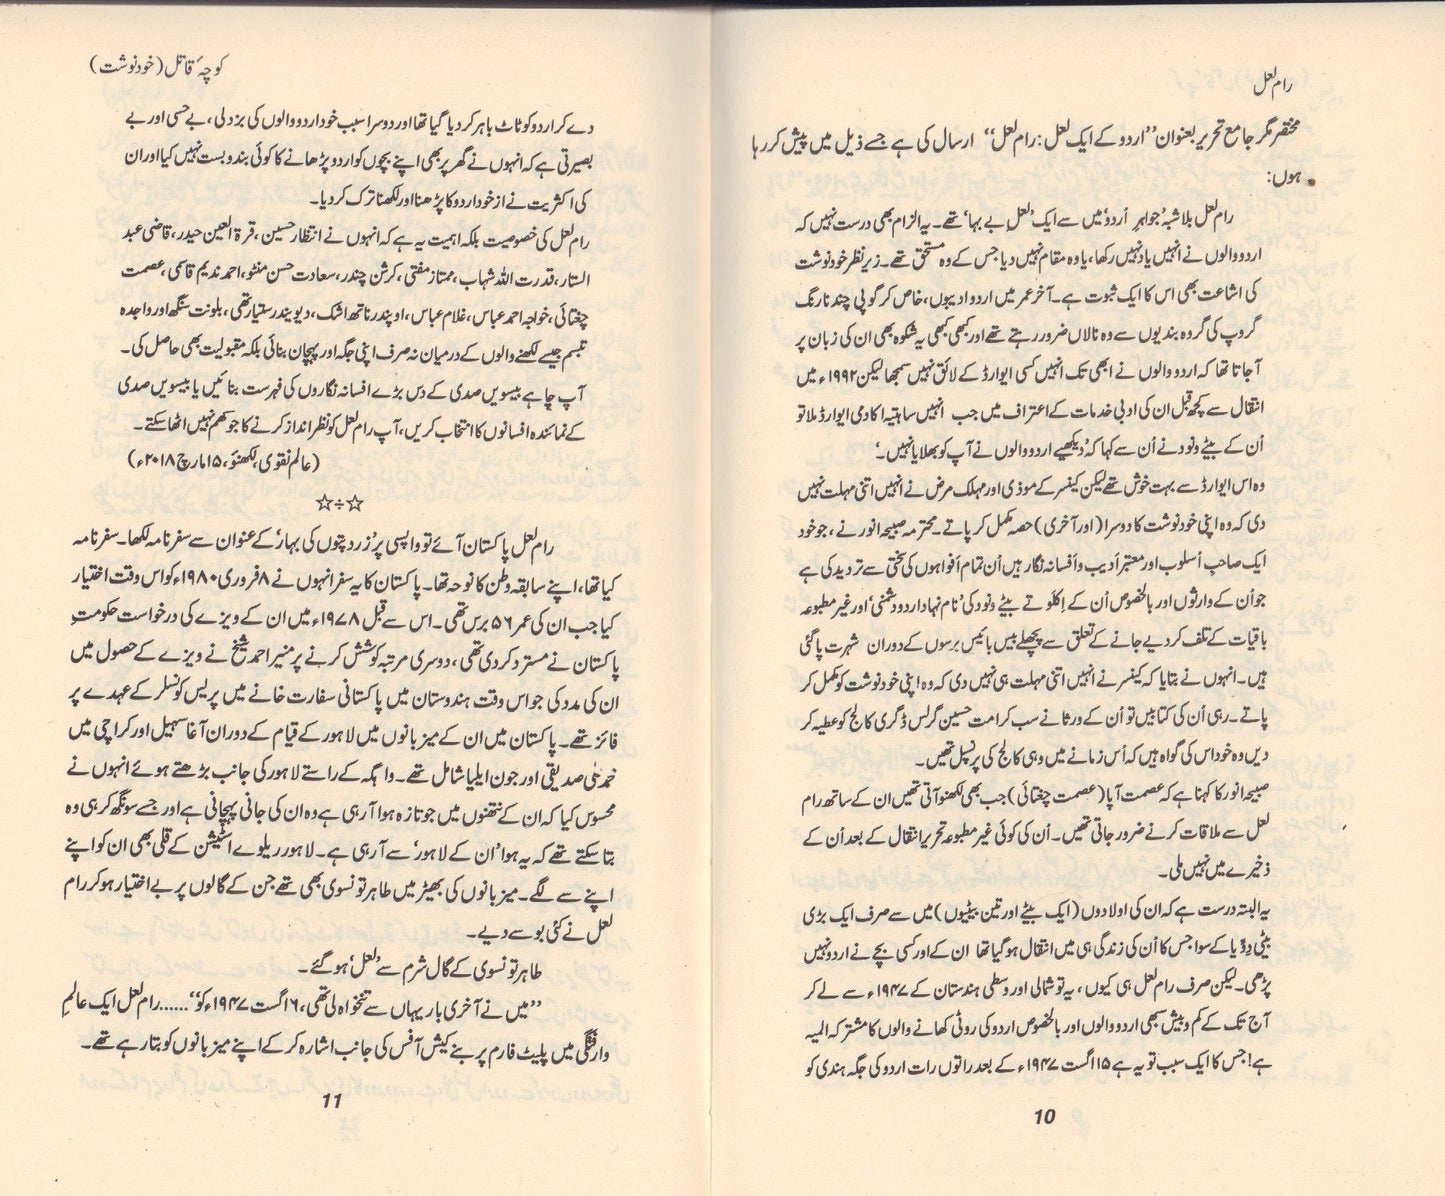 رام لعل
مختصر مگر جامع تحریر بعنوان ”اردو کے ایک لعل: رام لعل“ ارسال کی ہے جسے ذیل میں پیش کر رہا
ہوں:
رام لعل بلاشبہ ’جواہرِ اُردو‘ میں سے ایک ’لعلِ بے بہا‘ تھے۔ یہ الزام بھی درست نہیں کہ
اردو والوں نے انہیں یاد نہیں رکھا، یا وہ مقام نہیں دیا جس کے وہ مستحق تھے۔ زیر نظر خودنوشت
کی اشاعت بھی اس کا ایک ثبوت ہے۔ آخر عمر میں اردو ادیبوں، خاص کر گوپی چند نارنگ
گروپ کی گروہ بندیوں سے وہ نالاں ضرور رہتے تھے اور کبھی کبھی یہ شکوہ بھی ان کی زبان پر
آ جاتا تھا کہ اردو والوں نے ابھی تک انہیں کسی ایوارڈ کے لائق نہیں سمجھا لیکن ۱۹۹۲ء میں
انتقال سے کچھ قبل ان کی ادبی خدمات کے اعتراف میں جب انہیں ساہتیہ اکادمی ایوارڈ ملا تو
اُن کے بیٹے ونود نے اُن سے کہا کہ ’دیکھیے اردو والوں نے آپ کو بھلایا نہیں۔‘
وہ اس ایوارڈ سے بہت خوش تھے لیکن کینسر کے موذی اور مہلک مرض نے انہیں اتنی مہلت نہیں
دی کہ وہ اپنی خودنوشت کا دوسرا (اور آخری) حصہ مکمل کر پاتے۔ محترمہ صبیحہ انور نے، جو خود
ایک صاحبِ اُسلوب اور معتبر اَدیب و اَفسانہ نگار ہیں اُن تمام اَفواہوں کی سختی سے تردید کی ہے
جو اُن کے وارثوں اور بالخصوص اُن کے اِکلوتے بیٹے ونود کی ’نام نہاد اردو دشمنی‘ اور غیر مطبوعہ
باقیات کے تلف کر دیے جانے کے تعلق سے پچھلے بیس بائیس برسوں کے دوران شہرت پا گئی
ہیں۔ انہوں نے بتایا کہ کینسر نے انہیں اتنی مہلت ہی نہیں دی کہ وہ اپنی خودنوشت کو مکمل کر
پاتے۔ رہی اُن کی کتابیں تو اُن کے ورثا نے سب کرامت حسین گرلس ڈگری کالج کو عطیہ کر
دیں وہ خود اس کی گواہ ہیں کہ اُس زمانے میں وہی کالج کی پرنسپل تھیں۔
صبیحہ انور کا کہنا ہے کہ عصمت آپا (عصمت چغتائی) جب بھی لکھنؤ آتی تھیں ان کے ساتھ رام
لعل سے ملاقات کرنے ضرور جاتی تھیں۔ اُن کی کوئی غیر مطبوعہ تحریر انتقال کے بعد اُن کے
ذخیرے میں نہیں ملی۔
یہ البتہ درست ہے کہ ان کی اولادوں (ایک بیٹے اور تین بیٹیوں) میں سے صرف ایک بڑی
بیٹی وِدّیا کے سوا جس کا اُن کی زندگی ہی میں انتقال ہو گیا تھا ان کے اور کسی بچے نے اردو نہیں
پڑھی۔ لیکن صرف رام لعل ہی کیوں، یہ تو شمالی اور وسطی ہندستان کے ۱۹۴۷ء سے لے کر
آج تک کے کم و بیش سبھی اردو والوں اور بالخصوص اردو کی روٹی کھانے والوں کا مشترکہ المیہ
ہے! جس کا ایک سبب تو یہ ہے ۱۵ اگست ۱۹۴۷ء کے بعد راتوں رات اردو کی جگہ ہندی کو
10
کوچۂ قاتل (خودنوشت)
دے کر اردو کو ٹاٹ باہر کر دیا گیا تھا اور دوسرا سبب خود اردو والوں کی بزدلی، بے حسی اور بے
بصیرتی ہے کہ انہوں نے گھر پر بھی اپنے بچوں کو اردو پڑھانے کا کوئی بندوبست نہیں کیا اور ان
کی اکثریت نے از خود اردو کا پڑھنا اور لکھنا ترک کر دیا۔
رام لعل کی خصوصیت بلکہ اہمیت یہ ہے کہ انہوں نے انتظار حسین، قرۃ العین حیدر، قاضی عبد
الستار، قدرت اللہ شہاب، ممتاز مفتی، کرشن چندر، سعادت حسن منٹو، احمد ندیم قاسمی، عصمت
چغتائی، خواجہ احمد عباس، غلام عباس، اوپندر ناتھ اشک، دیویندر ستیارتھی، بلونت سنگھ اور واجدہ
تبسم جیسے لکھنے والوں کے درمیان نہ صرف اپنی جگہ اور پہچان بنائی بلکہ مقبولیت بھی حاصل کی۔
آپ چاہے بیسویں صدی کے دس بڑے افسانہ نگاروں کی فہرست بنائیں یا بیسویں صدی
کے نمائندہ افسانوں کا انتخاب کریں، آپ رام لعل کو نظر انداز کرنے کا جوکھم نہیں اٹھا سکتے۔
(عالم نقوی، لکھنؤ، ۱۵ مارچ ۲۰۱۸ء)
☆÷☆
رام لعل پاکستان آئے تو واپسی پر ’زرد پتوں کی بہار‘ کے عنوان سے سفرنامہ لکھا۔ سفرنامہ
کیا تھا، اپنے سابقہ وطن کا نوحہ تھا۔ پاکستان کا یہ سفر انہوں نے ۸ فروری ۱۹۸۰ء کو اس وقت اختیار
کیا جب ان کی عمر ۵۶ برس تھی۔ اس سے قبل ۱۹۷۸ء میں ان کے ویزے کی درخواست حکومتِ
پاکستان نے مسترد کر دی تھی، دوسری مرتبہ کوشش کرنے پر منیر احمد شیخ نے ویزے کے حصول میں
ان کی مدد کی جو اس وقت ہندوستان میں پاکستانی سفارت خانے میں پریس کونسلر کے عہدے پر
فائز تھے۔ پاکستان میں ان کے میزبانوں میں لاہور کے قیام کے دوران آغا سہیل اور کراچی میں
محمد علی صدیقی اور جون ایلیا شامل تھے۔ واہگہ کے راستے لاہور کی جانب بڑھتے ہوئے انہوں نے
محسوس کیا کہ ان کے نتھنوں میں جو تازہ ہوا آ رہی ہے وہ ان کی جانی پہچانی ہے اور جسے سونگھ کر ہی وہ
بتا سکتے تھے کہ یہ ہوا ’ان کے لاہور‘ سے آ رہی ہے۔ لاہور ریلوے اسٹیشن کے قلی بھی ان کو اپنے
اپنے سے لگے۔ میزبانوں کی بھیڑ میں طاہر تونسوی بھی تھے جن کے گالوں پر بے اختیار ہو کر رام
لعل نے کئی بوسے دیے۔
طاہر تونسوی کے گال شرم سے ’لعل‘ ہو گئے۔
”میں نے آخری بار یہاں سے تنخواہ لی تھی، ۱۶ اگست ۱۹۴۷ء کو“......رام لعل ایک عالمِ
وارفتگی میں پلیٹ فارم پر بنے کیش آفس کی جانب اشارہ کر کے اپنے میزبانوں کو بتا رہے تھے۔
11